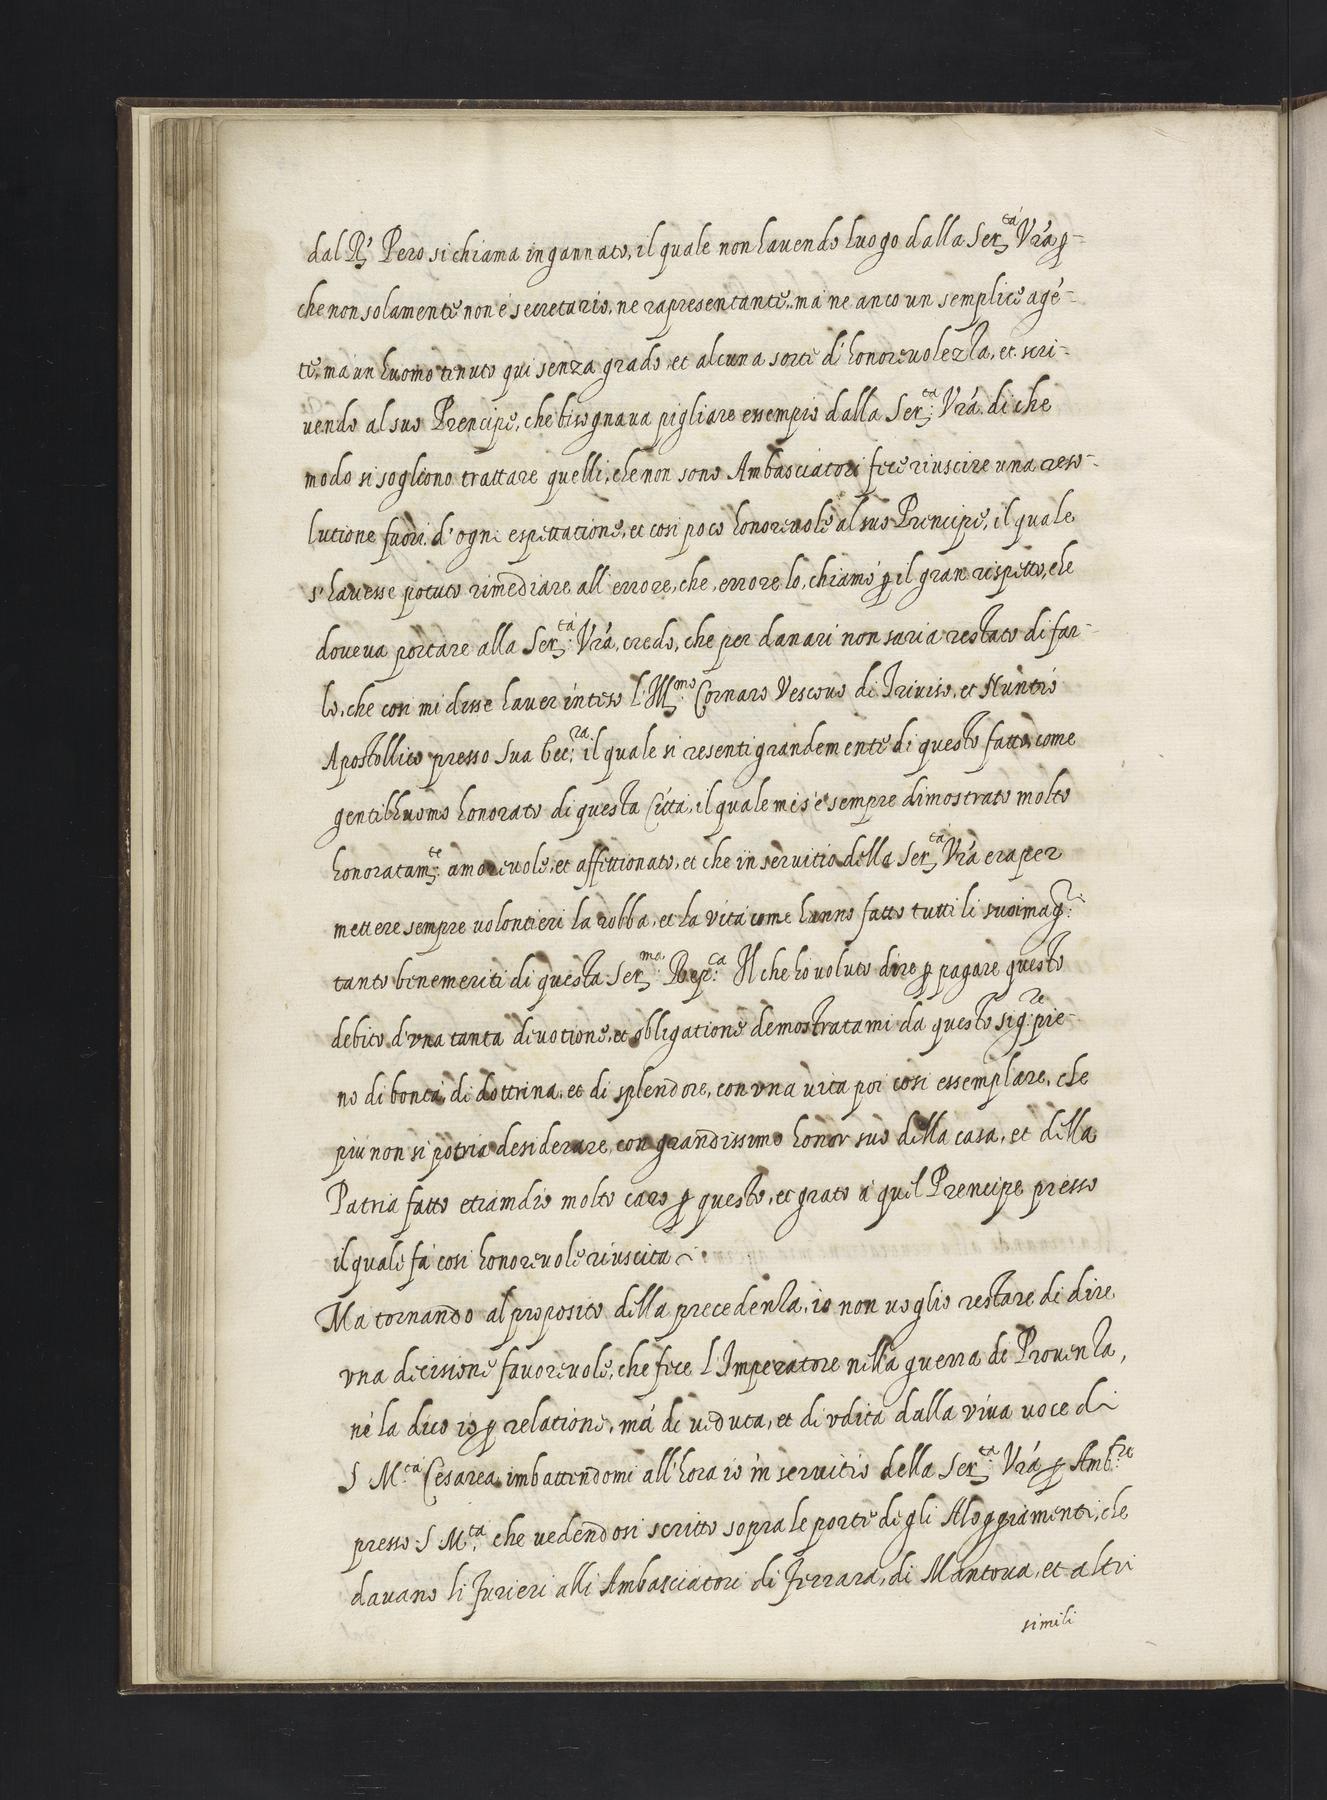 dal Rè Pero si chiama ingannato, il quale non havendo luogo dalla Ser:tà Vrã ꝑ-
che non solamente non è secretario, ne rapresentante, mà ne anco un semplice agẽ-
te, mà un huomo tenuto qui senza grado, et alcuna sorte d'honorevolezza, et scri-
vendo al suo Prencipe, che bisognaua pigliare essempio dalla Ser:tà Vrã di che
modo si sogliono trattare quelli, che non sono Ambasciatori fece riuscire una reso-
lutione fuori d'ogni espettatione, et cosi poco honorevole al suo Prencipe, il quale
s'havesse potuto rimediare all'errore, che, errore lo, chiamò ꝑ il gran rispetto, che
doveva portare alla Ser:tà Vrã, credo, che per danari non saria restato di far-
lo, che cosi mi disse haver inteso l'Ill:mo Cornaro Vescovo di Triviso, et Nuntio
Apostollico presso Sua Ecc:za il quale si resenti grandemente di questo fatto, come
gentilhuomo honorato di questa Città, il quale mi s'è sempre dimostrato molto
honoratam:te amorevole, et affittionato, et che in servitio della Ser:tà Vrã era per
mettere sempre volontieri la robba, et la vita come hanno fatto tutti li suoi mag:ri
tanto benemeriti di questa Ser:ma Rep:ca Il che hò voluto dire ꝑ pagare questo
debito d'vna tanta devotione, et obligatione demostratami da questo sig:re pie-
no di bontà, di dottrina, et di splendore, con vna vita poi cosi essemplare, che
più non si potria desiderare, con grandissimo honor suo della casa, et della
Patria fatto etiamdio molto caro ꝑ questo, et grato à quel Prencipe presso
il quale fà cosi honorevole riuscita
Ma tornando al proposito della precedenza, io non voglio restare di dire
vna decisione favorevole, che fece l'Imperatore nella guerra di Provenza,
nè la dico io ꝑ relatione, mà di veduta, et di vdita dalla viva voce di
S M:tà Cesarea imbattendomi all'hora io in servitio della Ser:tà Vrã ꝑ Amb:re
presso S M:tà, che vedendosi scritto sopra le porte degli Aloggiamenti, che
davano li Furieri alli Ambasciatori di Ferrara, di Mantova, et altri
simili